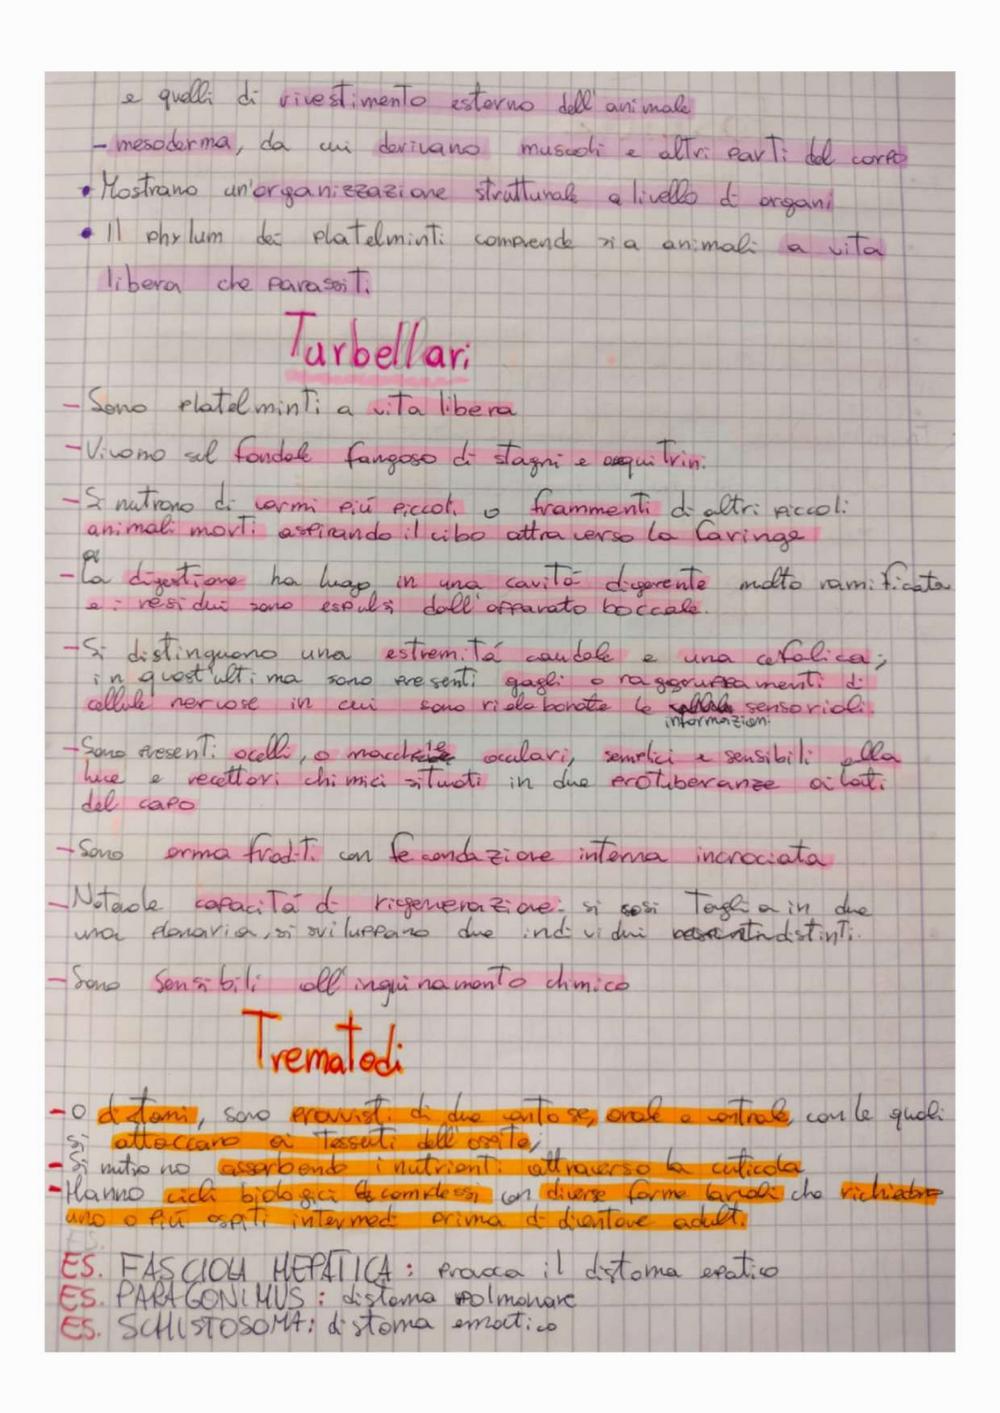 e quelli di rivestimento esterno dell'animale
- mesoderma, da cui derivano muscoli e altri parti del corpo
• Mostrano un'organizzazione strutturale a livello di organi
• Il phylum dei platelminti comprende sia animali a vita
libera che parassiti
Turbellari
- Sono platelminti a vita libera
- Vivono sul fondale fangoso di stagni e acquitrini
- Si nutrono di vermi più piccoli o frammenti di altri piccoli
animali morti aspirando il cibo attraverso la faringe
- La digestione ha luogo in una cavità digerente molto ramificata
e i residui sono espulsi dall'apparato boccale.
- Si distinguono una estremità caudale e una cefalica;
in quest'ultima sono presenti gagli o raggruppamenti di
cellule nervose in cui sono rielaborate le sensoriali.
informazioni
- Sono presenti ocelli, o macchie oculari, semplici e sensibili alla
luce e recettori chimici situati in due protuberanze ai lati
del capo
- Sono ermafroditi con fecondazione interna incrociata
- Notevole capacità di rigenerazione: si taglia in due
una planaria, si sviluppano due individui distinti.
- Sono sensibili all'inquinamento chimico
Trematodi
- O distomi, sono provvisti di due ventose, orale e ventrale, con le quali
si attaccano ai tessuti dell'ospite,
- Si nutrono assorbendo i nutrienti attraverso la cuticola
- Hanno cicli biologici complessi con diverse forme larvali che richiedono
uno o più ospiti intermedi prima di diventare adulti.
ES.
ES. FASCIOLA HEPATICA: provoca il distoma epatico
ES. PARAGONIMUS: distoma polmonare
ES. SCHISTOSOMA: distoma ematico